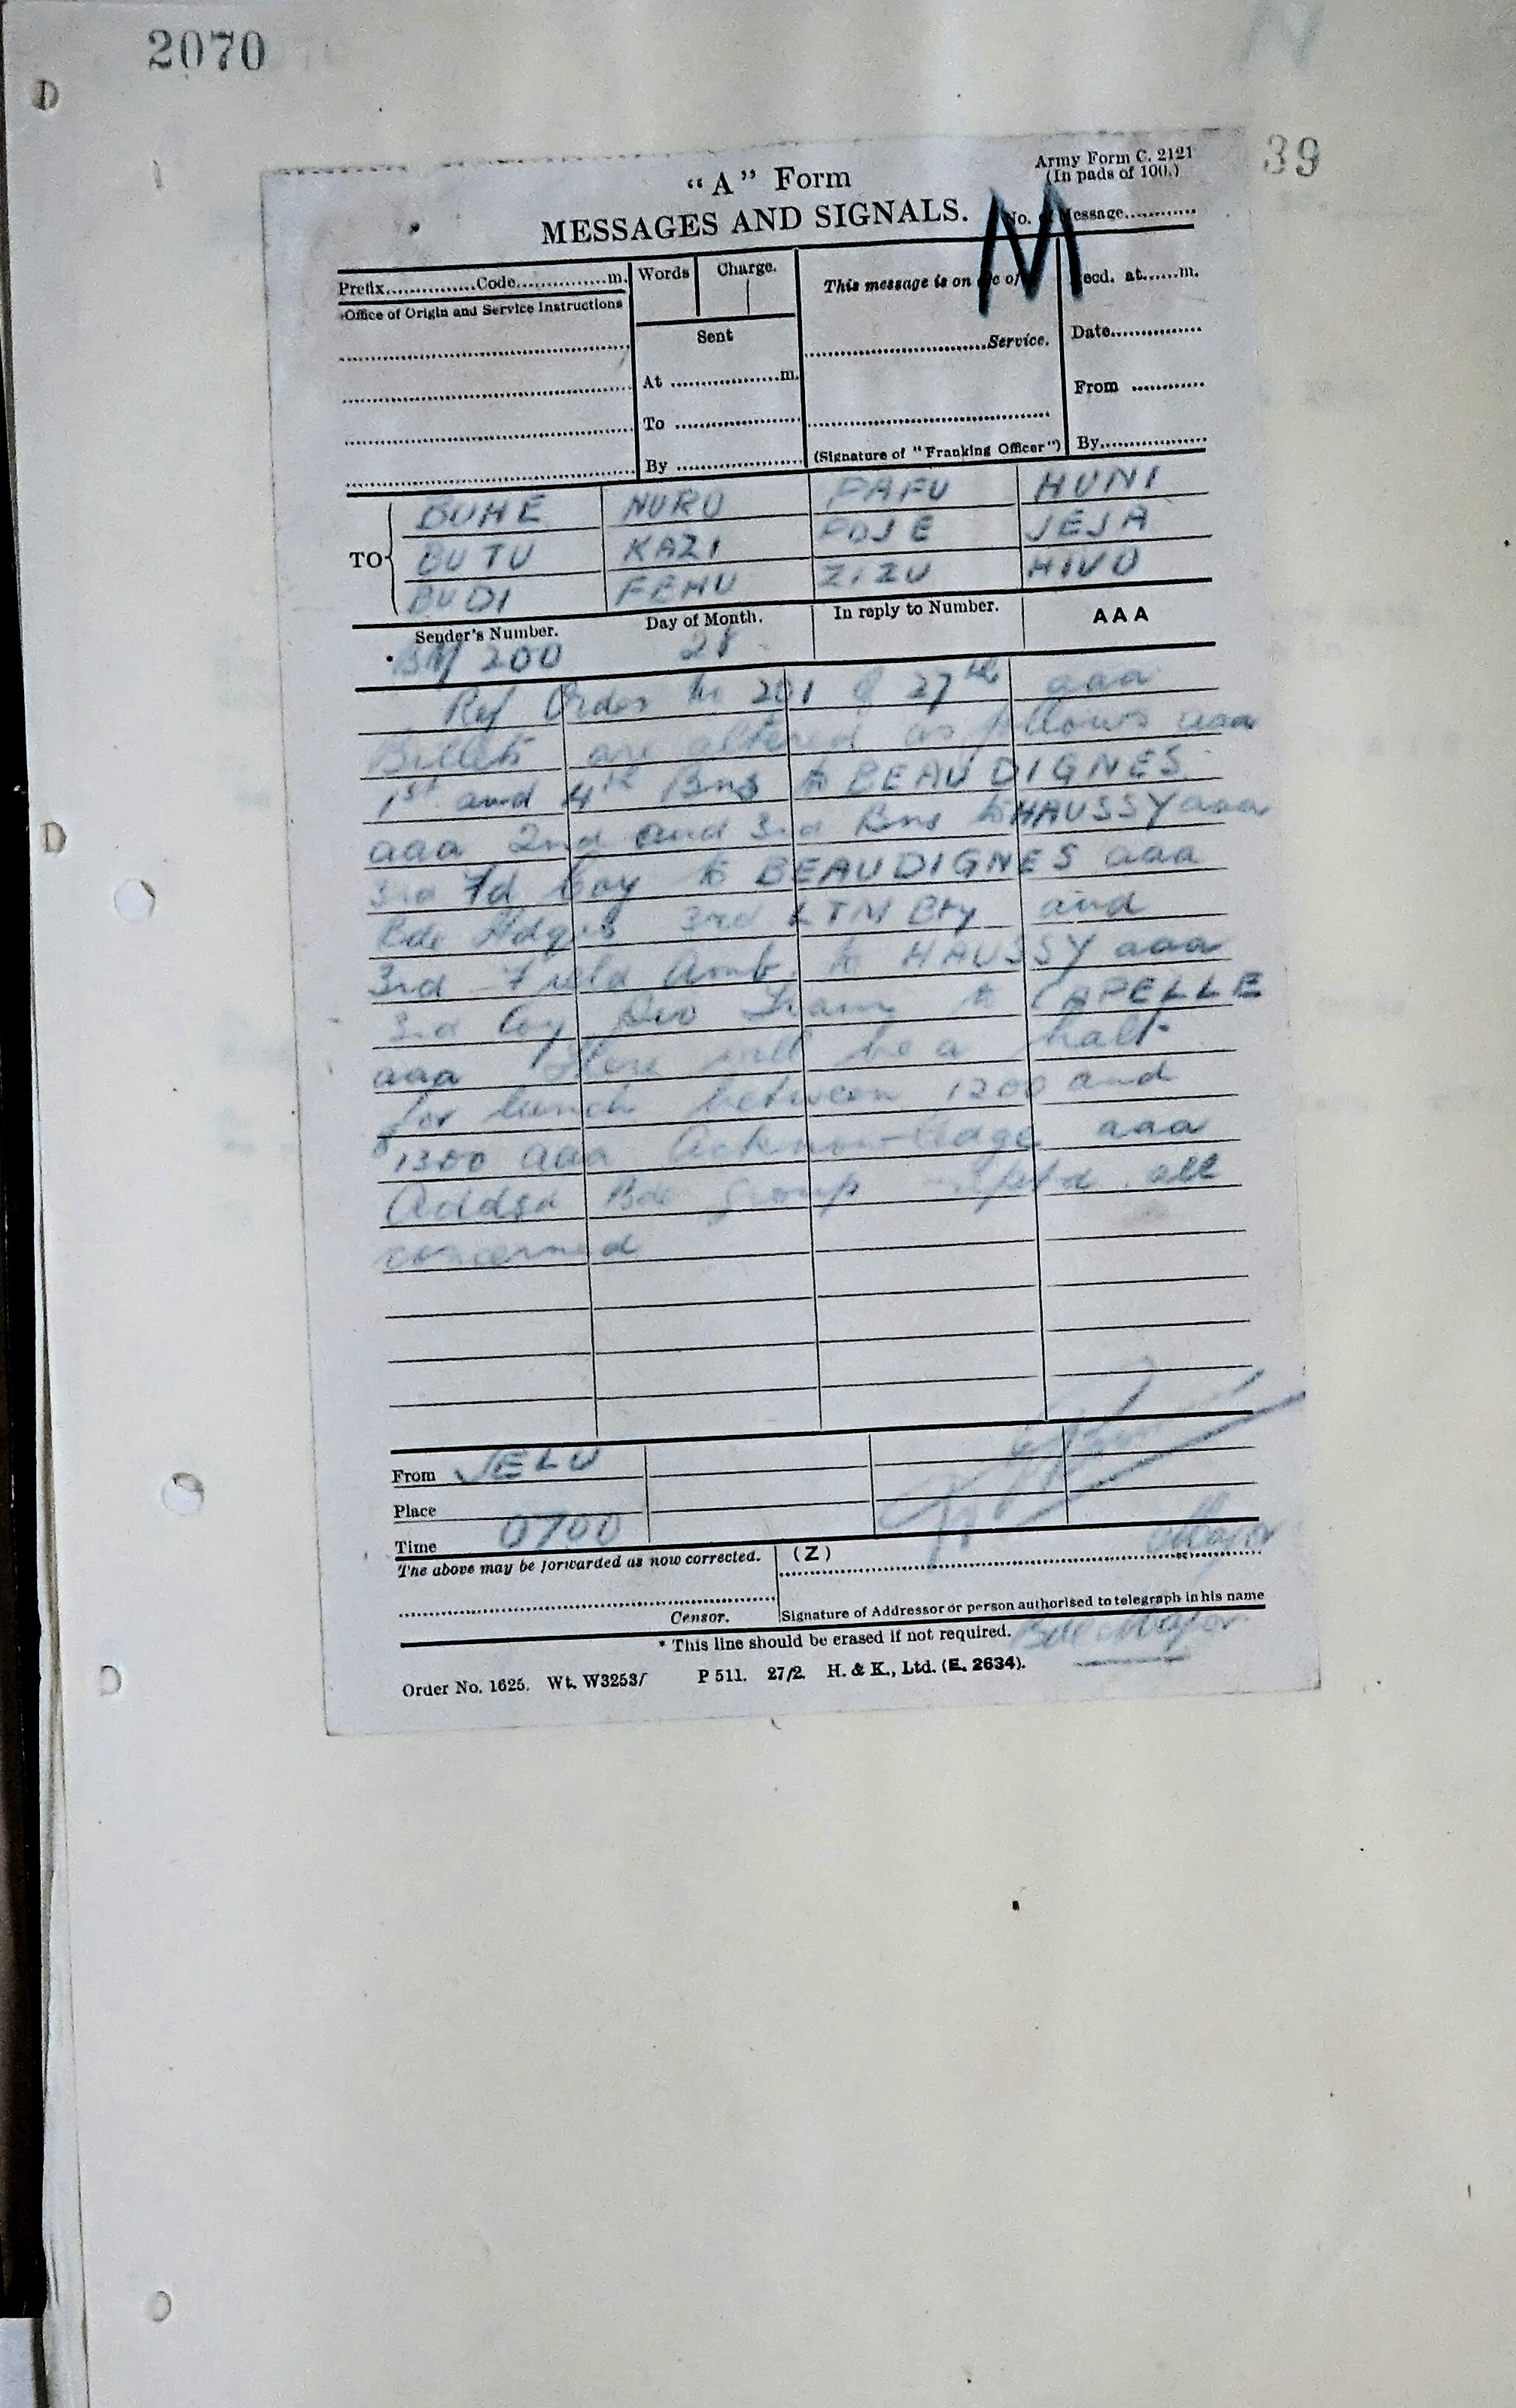 2070
39
"A" Form
Army Form C. 2121
(In pads of 100.)
MESSAGES AND SIGNALS.
No. of Message............
M
Prefix...............Code...............m.
Words
Charge.
This message is on a/c of
Recd. at......m.
Office of Origin and Service Instructions
Sent
..............................Service.
Date...............
At ..................m.
From ............
To .....................
By .....................
(Signature of "Franking Officer")
By..................
TO
BUHE NURU PAFU HUNI
BUTU KAZI POJE JEJA
BUDI FEHU ZIZU HIVO
Sender's Number.
Day of Month.
In reply to Number.
AAA
BM 200
28
Ref Order No 201 of 27th aaa
Billets are altered as follows aaa
1st and 4th Bns to BEAUDIGNES
aaa 2nd and 3rd Bns to HAUSSY aaa
3rd Fd Coy to BEAUDIGNES aaa
Bde Hdqrs 3rd LTM Bty and
3rd Field Amb. to HAUSSY aaa
3rd Coy Div Train to CAPELLE
aaa There will be a halt
for lunch between 1200 and
1300 aaa Acknowledge aaa
Addsd Bde Group reptd all
concerned
From JELU
Place
Time 0700
The above may be forwarded as now corrected.
(Z)
Major
Censor.
Signature of Addressor or person authorised to telegraph in his name
* This line should be erased if not required.
Bde Major
Order No. 1625. Wt. W3253/ P 511. 27/2. H. & K., Ltd. (E. 2634).